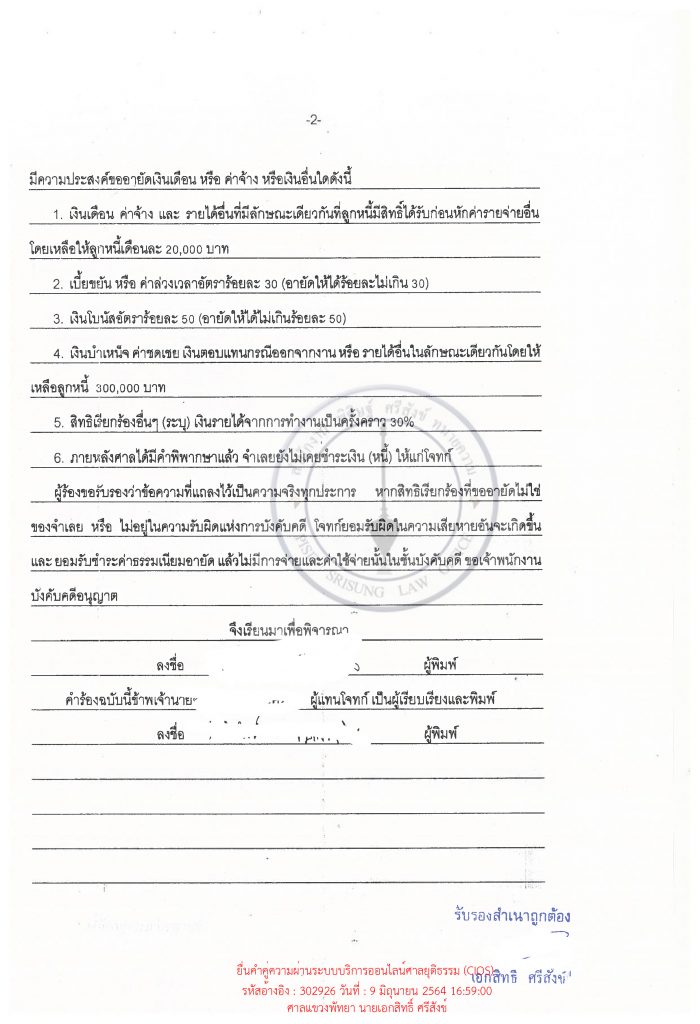 -2-
มีความประสงค์ขออายัดเงินเดือน หรือ ค่าจ้าง หรือเงินอื่นใดดังนี้
1. เงินเดือน ค่าจ้าง และ รายได้อื่นที่มีลักษณะเดียวกันที่ลูกหนี้มีสิทธิ์ได้รับก่อนหักค่ารายจ่ายอื่น
โดยเหลือให้ลูกหนี้เดือนละ 20,000 บาท
2. เบี้ยขยัน หรือ ค่าล่วงเวลาอัตราร้อยละ 30 (อายัดให้ได้ร้อยละไม่เกิน 30)
3. เงินโบนัสอัตราร้อยละ 50 (อายัดให้ได้ไม่เกินร้อยละ 50)
4. เงินบำเหน็จ ค่าชดเชย เงินตอบแทนกรณีออกจากงาน หรือ รายได้อื่นในลักษณะเดียวกันโดยให้
เหลือลูกหนี้ 300,000 บาท
5. สิทธิเรียกร้องอื่นๆ (ระบุ) เงินรายได้จากการทำงานเป็นครั้งคราว 30%
6. ภายหลังศาลได้มีคำพิพากษาแล้ว จำเลยยังไม่เคยชำระเงิน (หนี้) ให้แก่โจทก์
ผู้ร้องขอรับรองว่าข้อความที่แถลงไว้เป็นความจริงทุกประการ หากสิทธิเรียกร้องที่ขออายัดไม่ใช่
ของจำเลย หรือ ไม่อยู่ในความรับผิดแห่งการบังคับคดี โจทก์ยอมรับผิดในความเสียหายอันจะเกิดขึ้น
และ ยอมรับชำระค่าธรรมเนียมอายัด แล้วไม่มีการจ่ายและค่าใช้จ่ายนั้นในชั้นบังคับคดี ขอเจ้าพนักงาน
บังคับคดีอนุญาต
จึงเรียนมาเพื่อพิจารณา
ลงชื่อ ผู้พิมพ์
คำร้องฉบับนี้ข้าพเจ้านาย ผู้แทนโจทก์ เป็นผู้เรียบเรียงและพิมพ์
ลงชื่อ ผู้พิมพ์
PISIT SRISUNG LAW OFFICE
รับรองสำเนาถูกต้อง
เอกสิทธิ์ ศรีสังข์
ยื่นคำคู่ความผ่านระบบบริการออนไลน์ศาลยุติธรรม (CIOS)
รหัสอ้างอิง : 302926 วันที่ : 9 มิถุนายน 2564 16:59:00
ศาลแขวงพัทยา นายเอกสิทธิ์ ศรีสังข์